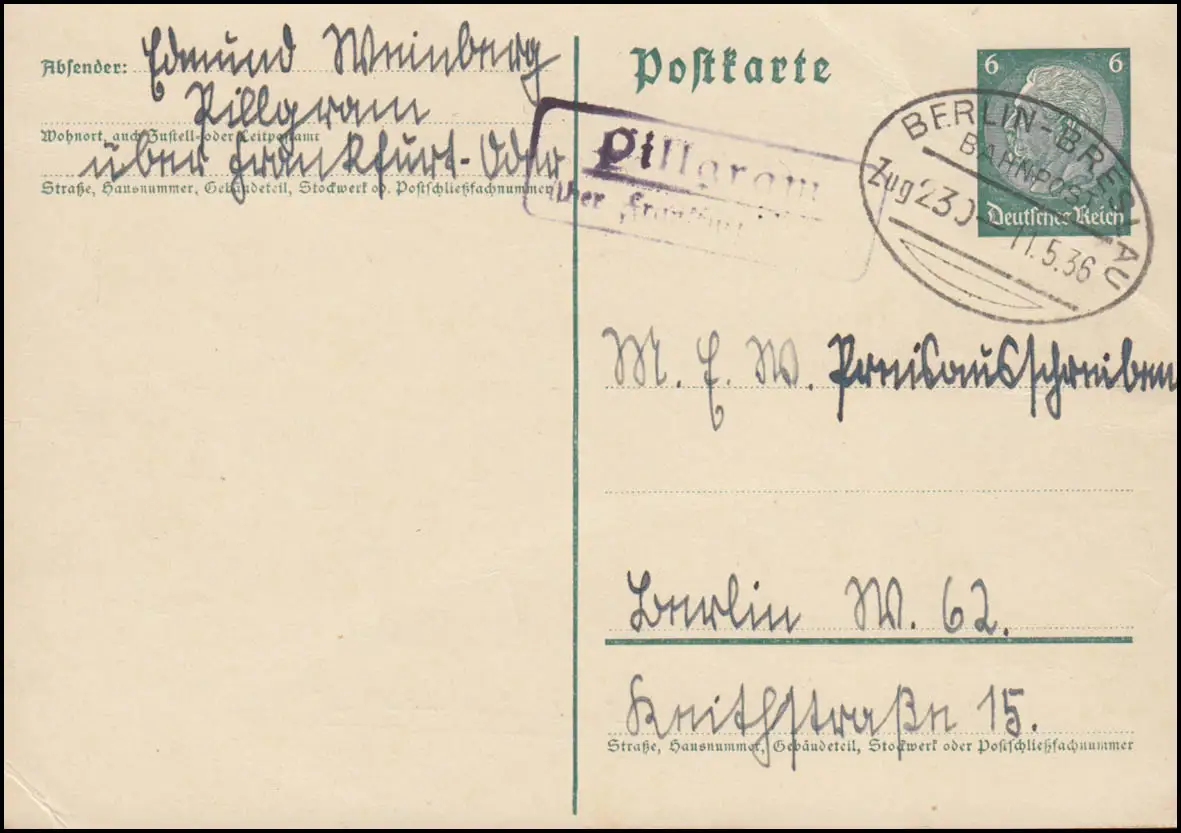 Absender: Edmund Weinberg
Pillgram
Wohnort, auch Zustell- oder Leitpostamt
über Frankfurt-Oder
Straße, Hausnummer, Gebäudeteil, Stockwerk od. Postschließfachnummer
Postkarte
6 6
Deutsches Reich
Pillgram
über Frankfurt
BERLIN-BRESLAU
BAHNPOST
Zug 230
11.5.36
M. E. W. Preisausschreiben
Berlin W. 62.
Keithstraße 15.
Straße, Hausnummer, Gebäudeteil, Stockwerk oder Postschließfachnummer